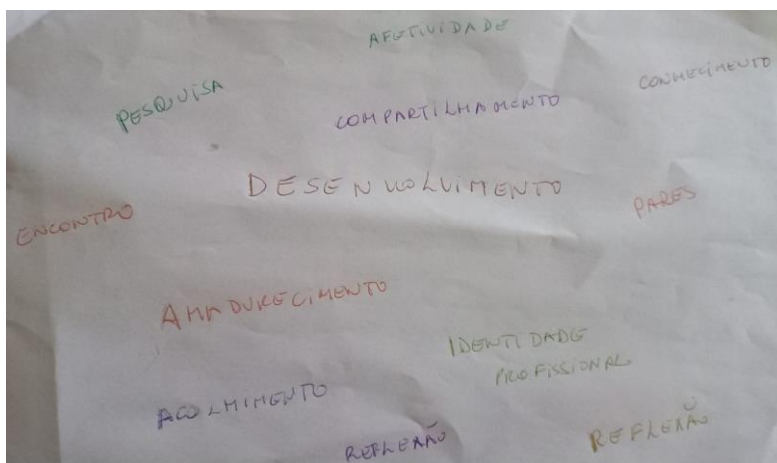 AFETIVIDADE
PESQUISA
CONHECIMENTO
COMPARTILHAMENTO
DESENVOLVIMENTO
ENCONTRO
PARES
AMADURECIMENTO
IDENTIDADE
PROFISSIONAL
ACOLHIMENTO
REFLEXÃO
REFLEXÃO